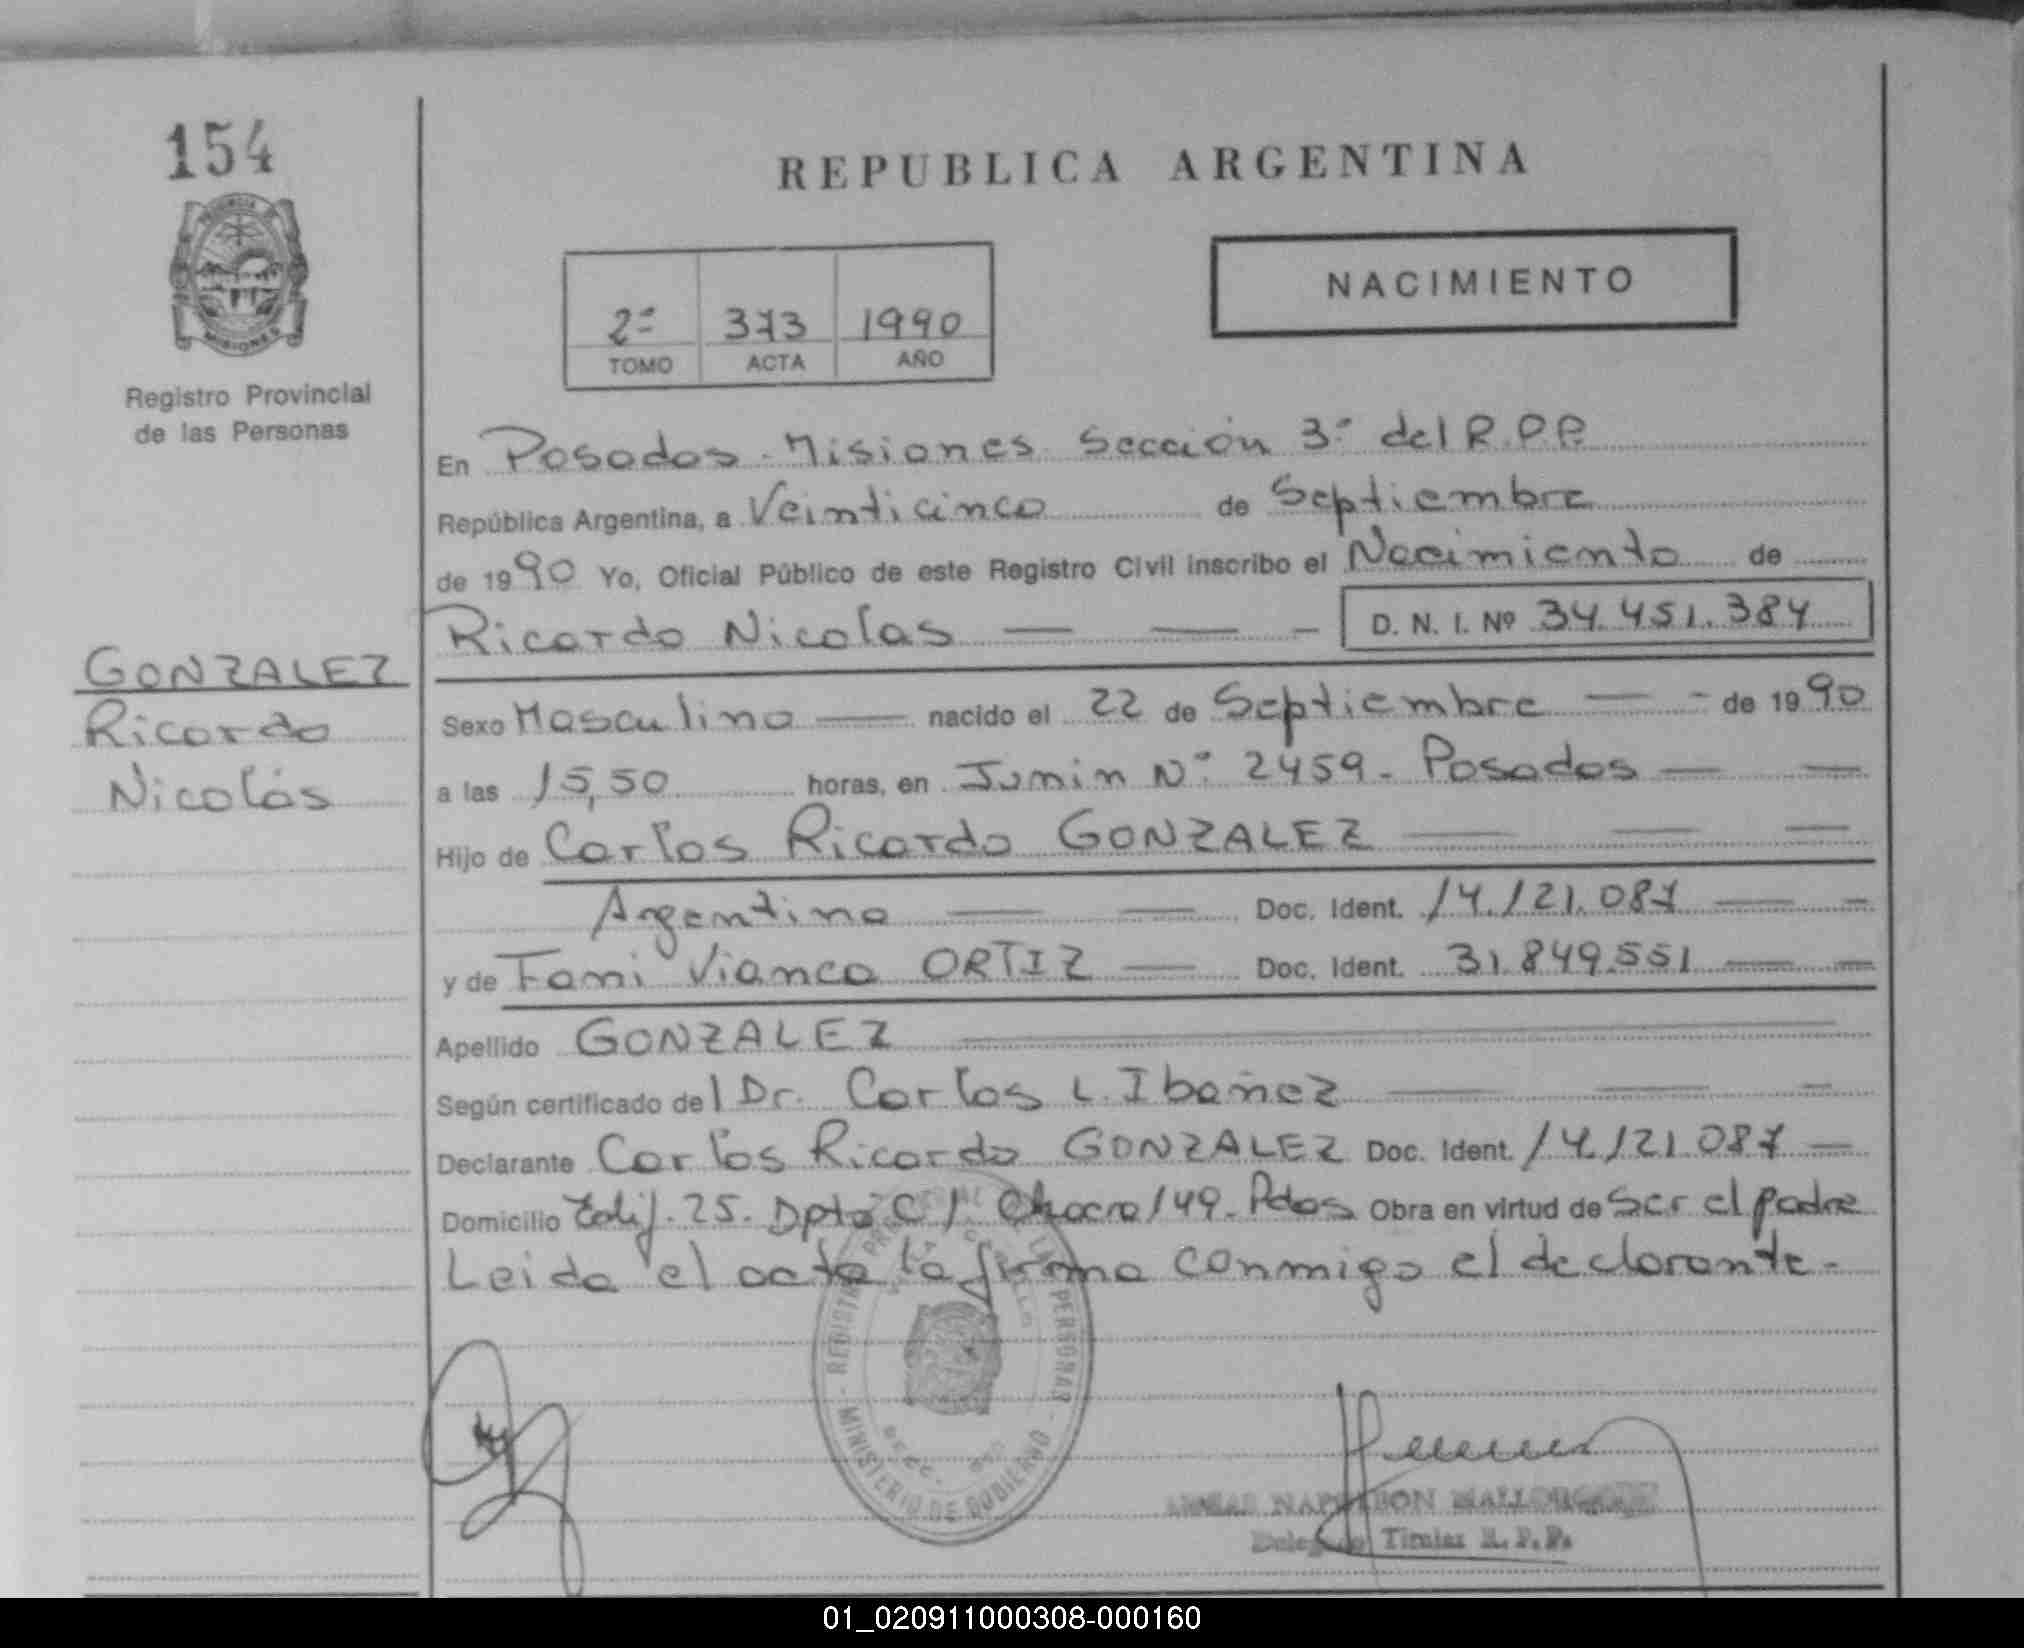 154
REPUBLICA ARGENTINA
NACIMIENTO
2º 373 1990
TOMO ACTA AÑO
PROVINCIA DE
MISIONES
Registro Provincial
de las Personas
En Posadas - Misiones Sección 3º del R.P.P.
República Argentina, a Veinticinco de Septiembre
de 1990 Yo, Oficial Público de este Registro Civil inscribo el Nacimiento de
Ricardo Nicolas — — - D. N. I. Nº 34.451.387
GONZALEZ
Ricardo
Nicolás
Sexo Masculino — nacido el 22 de Septiembre — - de 1990
a las 15,50 horas, en Junin Nº 2459 - Posadas — —
Hijo de Carlos Ricardo GONZALEZ — — —
Argentino — — Doc. Ident. 14.121.087 — -
y de Fani Vianca ORTIZ — Doc. Ident. 31.849.551 — —
Apellido GONZALEZ —
Según certificado del Dr. Carlos L. Ibañez — — -
Declarante Carlos Ricardo GONZALEZ Doc. Ident. 14.121.087 —
Domicilio Edif. 25. Dpto C/ Chacra 149 - Pdas Obra en virtud de ser el padre
Leida el acta la firma conmigo el declarante -
REGISTRO PROVINCIAL DE LAS PERSONAS
MINISTERIO DE GOBIERNO
NAPOLEON
Delegado Titular R. P. P.
01_020911000308-000160